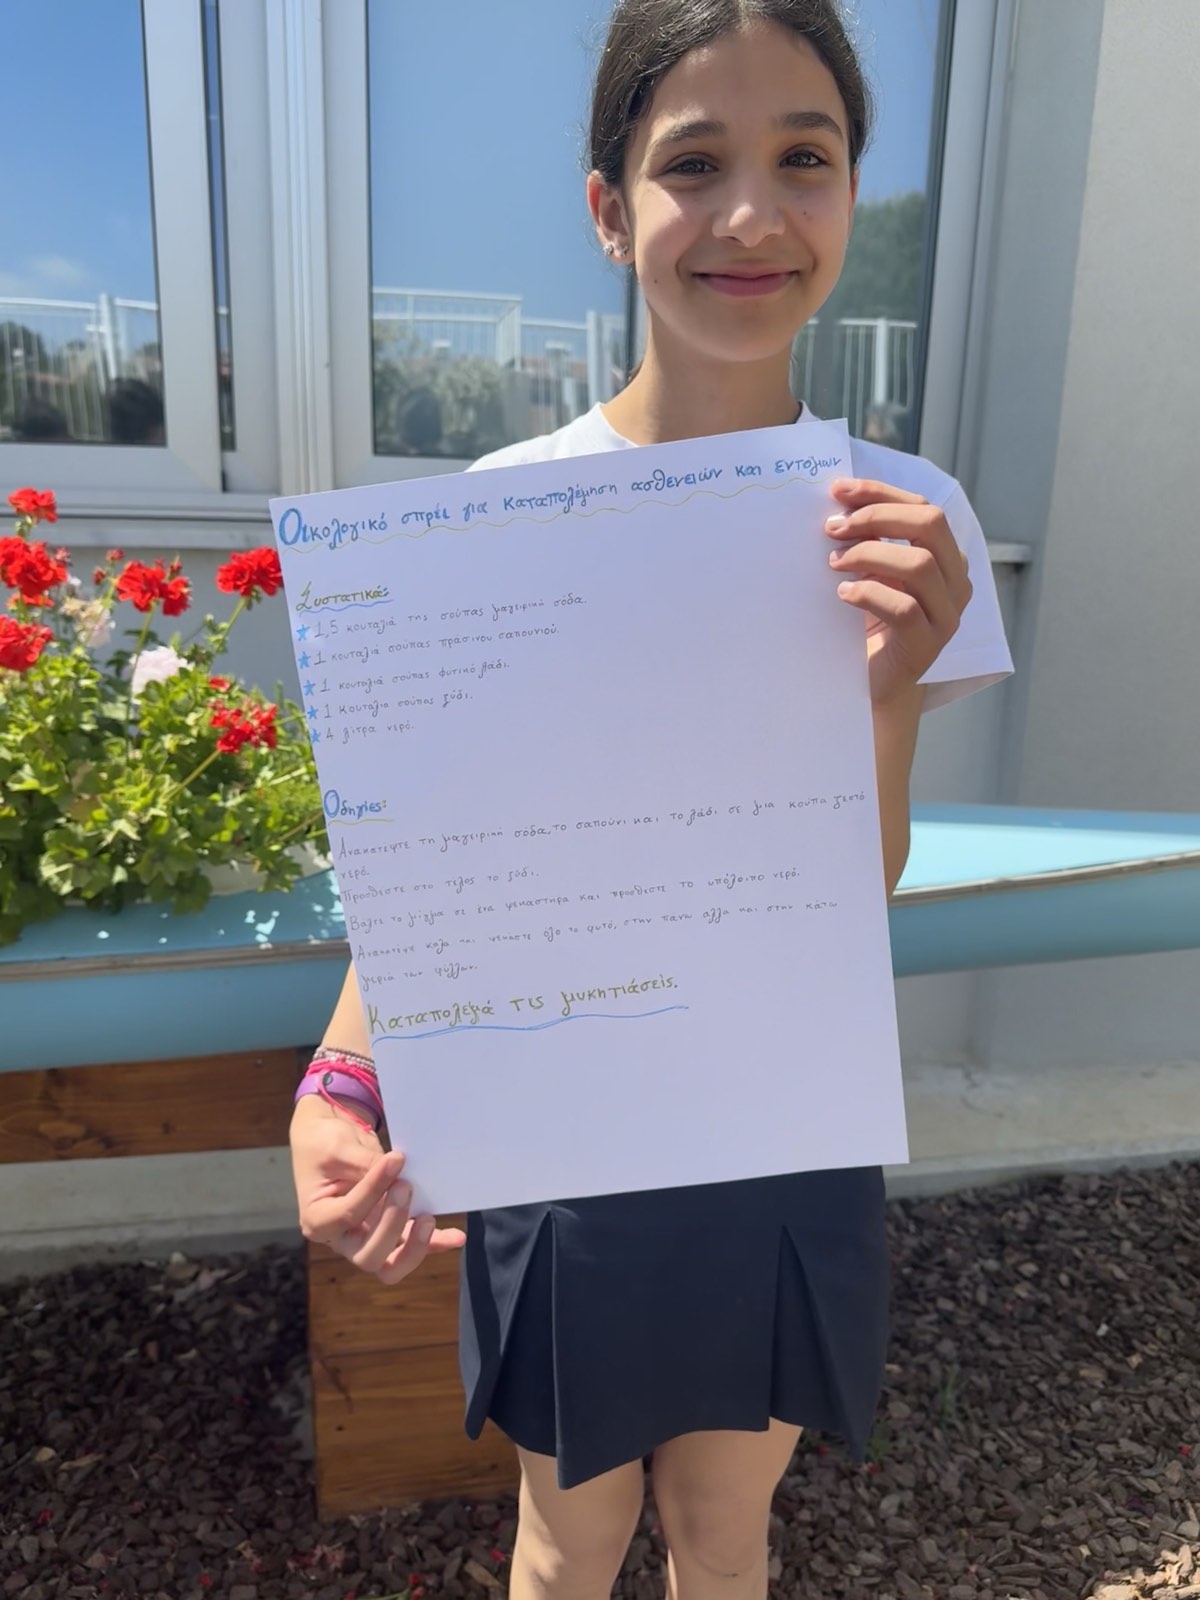 Οικολογικό σπρέι για καταπολέμηση ασθενειών και εντόμων
Συστατικά:
1,5 κουταλιά της σούπας μαγειρική σόδα.
1 κουταλιά σούπας πράσινου σαπουνιού.
1 κουταλιά σούπας φυτικό λάδι.
1 κουταλια σούπας ξύδι.
4 λίτρα νερό.
Οδηγίες:
Ανακατέψτε τη μαγειρική σόδα, το σαπούνι και το λάδι σε μια κούπα ζεστό
νερό.
Προσθέστε στο τέλος το ξύδι.
Βάλτε το μίγμα σε ένα ψεκαστήρα και προσθέστε το υπόλοιπο νερό.
Ανακατέψτε καλά και ψεκάστε όλο το φυτό, στην πάνω αλλά και στην κάτω
μεριά των φύλλων.
Καταπολεμά τις μυκητιάσεις.